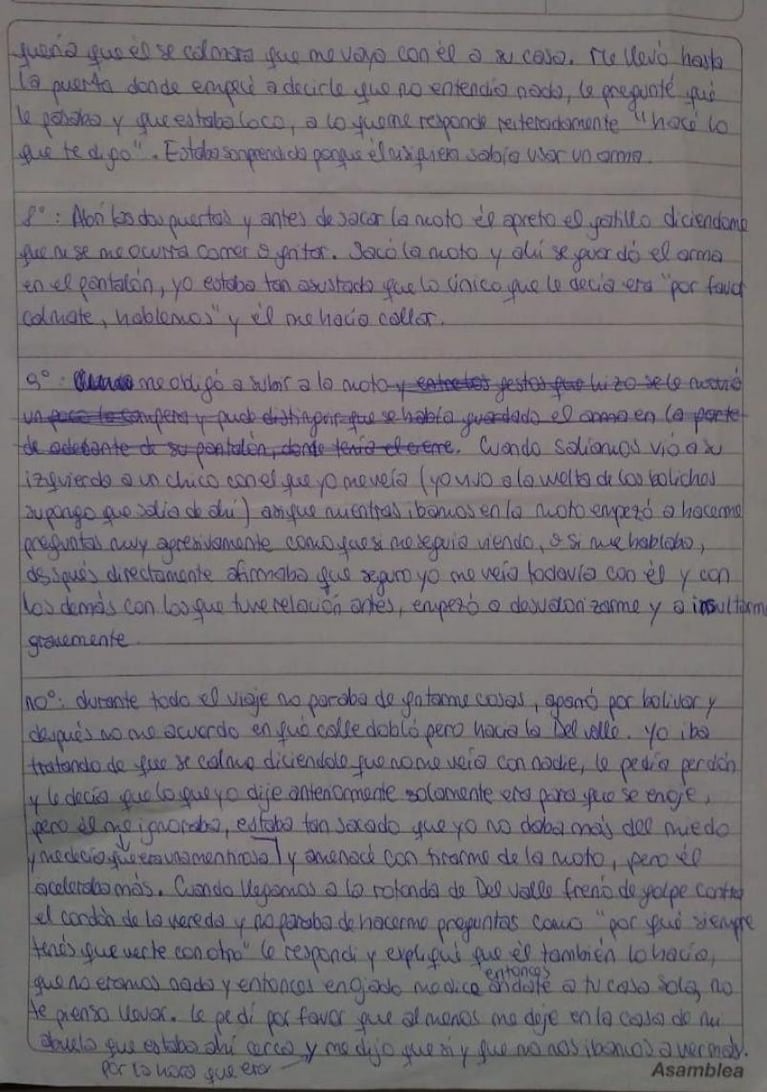 quería que él se calmara que me vaya con él a su casa. Me llevó hasta
la puerta donde empecé a decirle que no entendía nada, le pregunté qué
le pasaba y que estaba loco, a lo que me responde reiteradamente "hacé lo
que te digo". Estaba sorprendida porque él ni siquiera sabía usar un arma.
8°: Abrí las dos puertas y antes de sacar la moto él apretó el gatillo diciendome
que ni se me ocurra correr o gritar. Sacó la moto y ahí se guardó el arma
en el pantalón, yo estaba tan asustada que lo único que le decía era "por favor
calmate, hablemos" y él me hacía callar.
9°: Cuando me obligó a subir a la moto y entre los gestos que hizo se le movió
un poco la campera y pude distinguir que se había guardado el arma en la parte
de adelante de su pantalón, donde tenía el cierre. Cuando salíamos vio a su
izquierda a un chico con el que yo me veía (yo vivo a la vuelta de los boliches
supongo que salía de ahí) asique mientras ibamos en la moto empezó a hacerme
preguntas muy agresivamente como que si me seguía viendo, o si me hablaba,
después directamente afirmaba que seguro yo me veía todavía con él y con
los demás con los que tuve relación antes, empezó a desvalorizarme y a insultarme
gravemente.
10°: durante todo el viaje no paraba de gritarme cosas, agarró por bolivar y
después no me acuerdo en qué calle dobló pero hacia la Del valle. Yo iba
tratando de que se calme diciendole que no me veía con nadie, le pedía perdón
y le decía que lo que yo dije anteriormente solamente era para que se enoje,
pero él me ignoraba, estaba tan sacado que yo no daba más del miedo
y me decía que era una mentirosa y amenacé con tirarme de la moto, pero él
aceleraba más. Cuando llegamos a la rotonda de Del Valle frenó de golpe contra
el cordón de la vereda y no paraba de hacerme preguntas como "por qué siempre
tenés que verte con otro" le respondí y expliqué que él también lo hacía,
que no eramos nada y entonces enojado me dice entonces andate a tu casa sola, no
te pienso llevar. Le pedí por favor que al menos me deje en la casa de mi
abuela que estaba ahí cerca y me dijo que si y que no nos ibamos a ver más.
por la hora que era
Asamblea